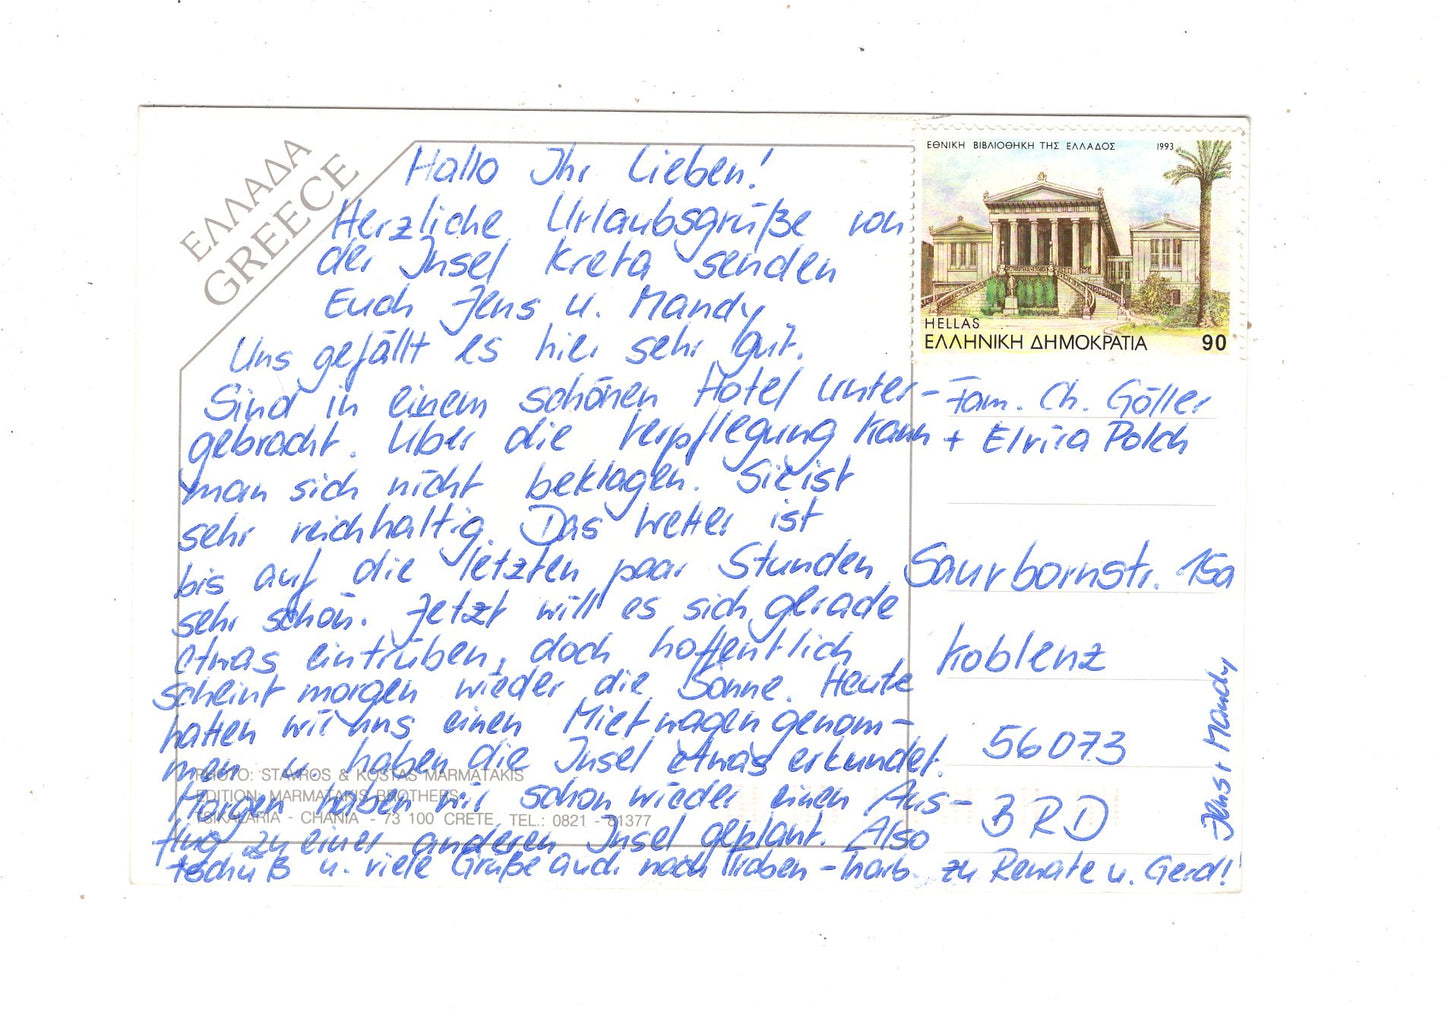 ΕΛΛΑΔΑ
GREECE
Hallo Ihr Lieben!
Herzliche Urlaubsgrüße von
der Insel Kreta senden
Euch Jens u. Mandy
Uns gefällt es hier sehr gut.
Sind in einem schönen Hotel unter-
gebracht. Über die Verpflegung kann
man sich nicht beklagen. Sie ist
sehr reichhaltig. Das Wetter ist
bis auf die letzten paar Stunden
sehr schön. Jetzt will es sich gerade
etwas eintrüben, doch hoffentlich
scheint morgen wieder die Sonne. Heute
hatten wir uns einen Mietwagen genom-
men u. haben die Insel etwas erkundet.
Morgen haben wir schon wieder einen Aus-
flug zu einer anderen Insel geplant. Also
tschüß u. viele Grüße auch nach zu Renate u. Gerd!
Jens + Mandy
PHOTO: STAVROS & KOSTAS MARMATAKIS
EDITION: MARMATAKIS BROTHERS
TSIKALARIA - CHANIA - 73 100 CRETE TEL.: 0821 - 81377
ΕΘΝΙΚΗ ΒΙΒΛΙΟΘΗΚΗ ΤΗΣ ΕΛΛΑΔΟΣ 1993
HELLAS
ΕΛΛΗΝΙΚΗ ΔΗΜΟΚΡΑΤΙΑ 90
Fam. Ch. Göller
+ Elvira Polch
Saurbornstr. 15a
Koblenz
56073
BRD